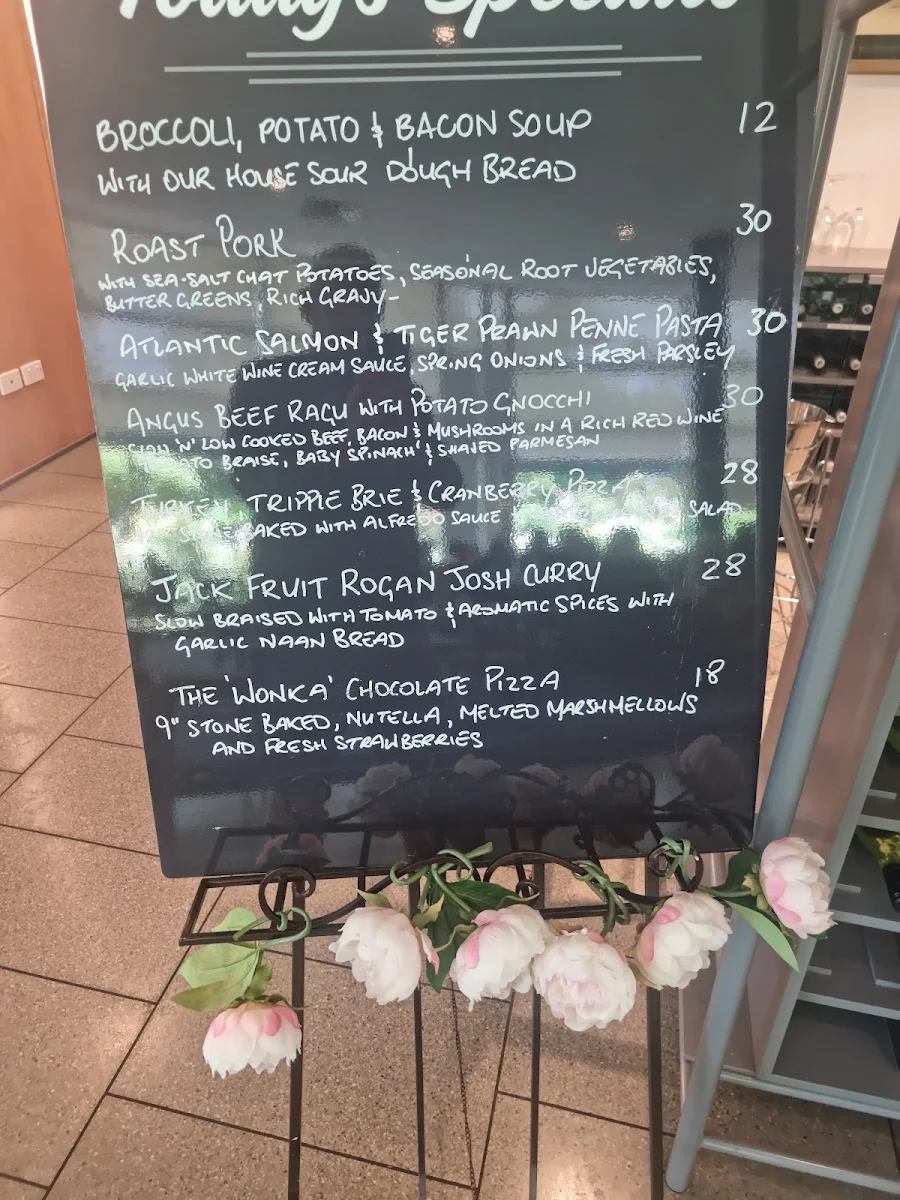 Today's Specials
BROCCOLI, POTATO & BACON SOUP 12
WITH OUR HOUSE SOUR DOUGH BREAD
ROAST PORK 30
WITH SEA-SALT CHAT POTATOES, SEASONAL ROOT VEGETABLES,
BUTTER GREENS, RICH GRAVY-
ATLANTIC SALMON & TIGER PRAWN PENNE PASTA 30
GARLIC WHITE WINE CREAM SAUCE, SPRING ONIONS & FRESH PARSLEY
ANGUS BEEF RAGU WITH POTATO GNOCCHI 30
'N' LOW COOKED BEEF, BACON & MUSHROOMS IN A RICH RED WINE
BRAISE, BABY SPINACH & SHAVED PARMESAN
TURKEY, TRIPPLE BRIE & CRANBERRY PIZZA 28
BAKED WITH ALFREDO SAUCE SALAD
JACK FRUIT ROGAN JOSH CURRY 28
SLOW BRAISED WITH TOMATO & AROMATIC SPICES WITH
GARLIC NAAN BREAD
THE 'WONKA' CHOCOLATE PIZZA 18
9" STONE BAKED, NUTELLA, MELTED MARSHMELLOWS
AND FRESH STRAWBERRIES